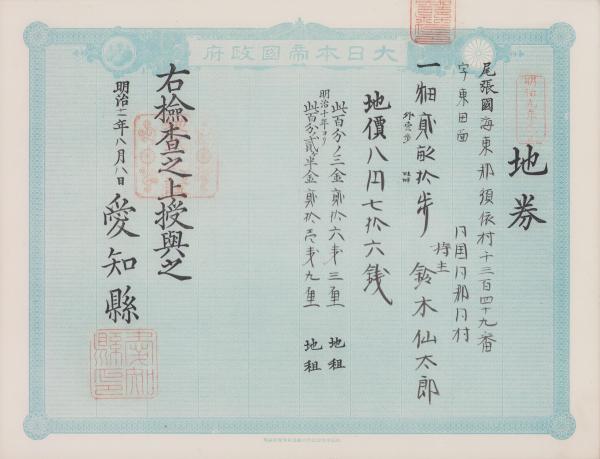 大日本帝國政府
明治九年
地券
尾張國海東郡須依村千三百四十九番
字東田面
同国同郡同村
一 畑貳畝拾歩
外壱歩 畦畔
持主 鈴木仙太郎
地價八円七拾六銭
此百分ノ三金貳拾六銭三厘 地租
明治十年ヨリ
此百分ノ貳半金貳拾壱銭九厘 地租
右撿査之上授與之
明治十二年八月八日
愛知縣
愛知縣印